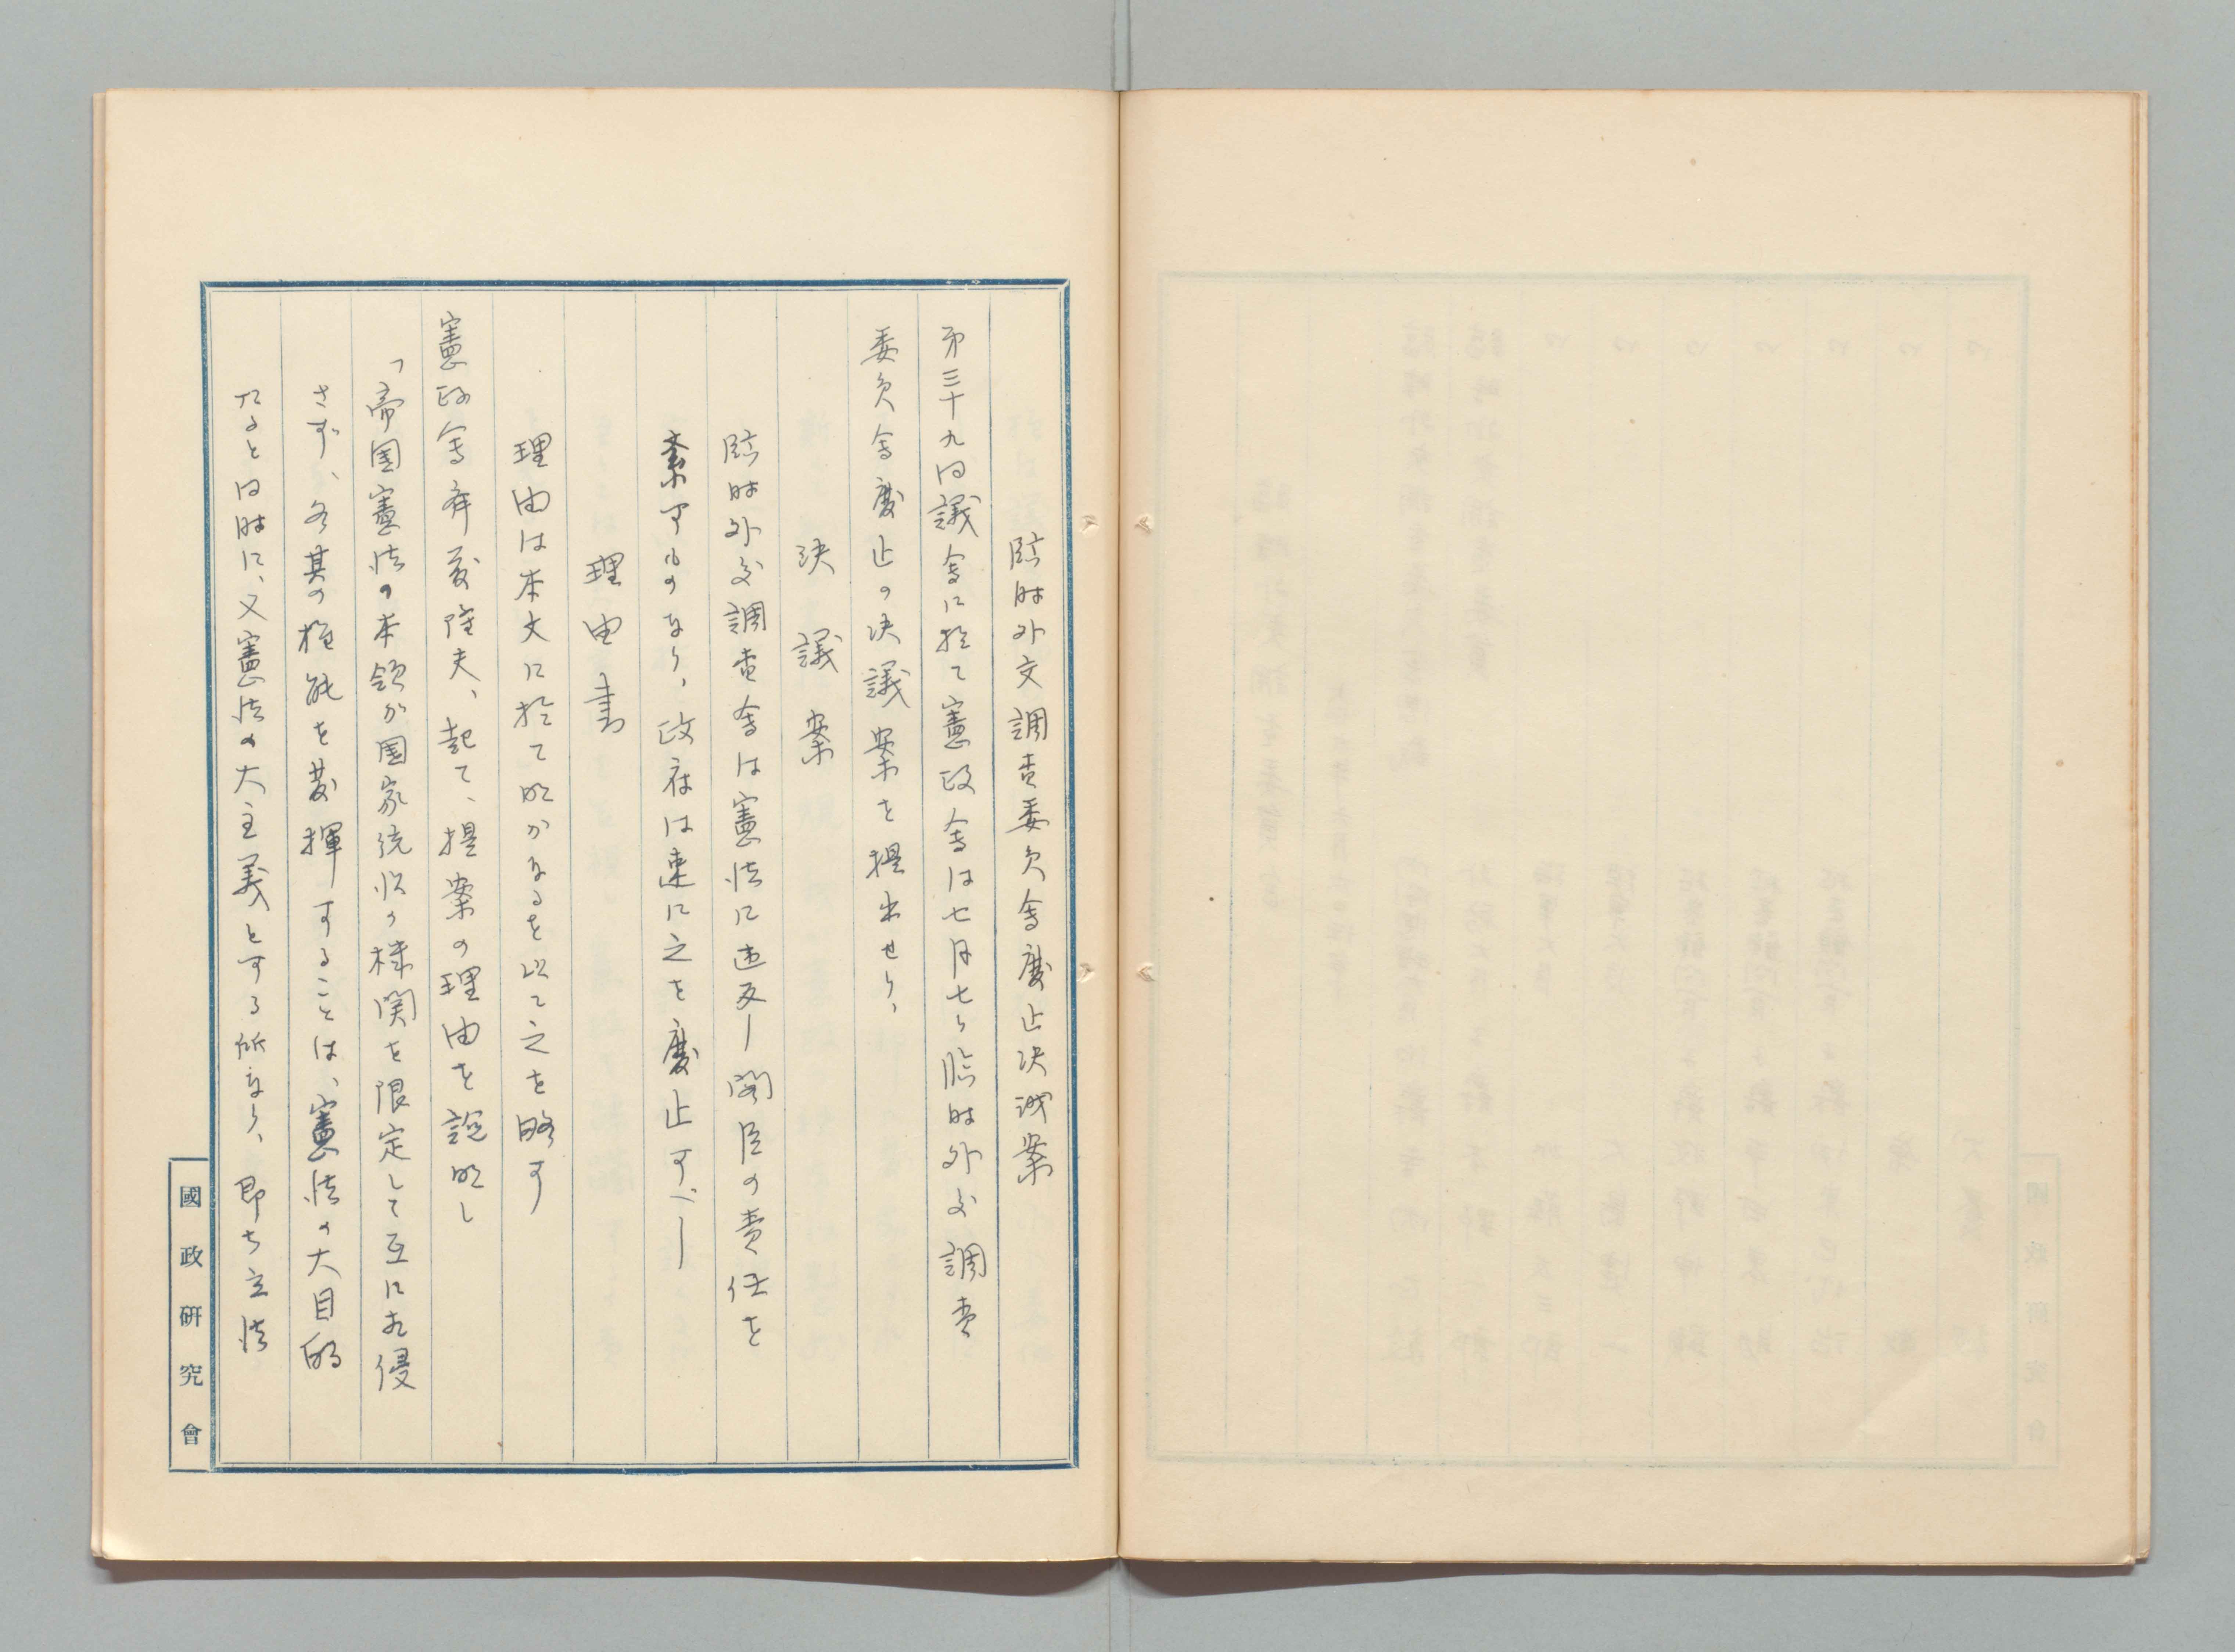 臨時外交調査委員会廃止決議案
第三十九回議会に於て憲政会は七月七日臨時外交調査
委員会廃止の決議案を提出せり、
決議案
臨時外交調査会は憲法に違反し閣臣の責任を
紊すものなり、政府は速に之を廃止すべし
理由書
理由は本文に於て明かなるを以て之を略す
憲政会斉藤隆夫、起て、提案の理由を説明し
「帝国憲法の本領が国家統治の機関を限定して互に相侵
さず、各其の権能を発揮することは、憲法の大目的
たると同時に、又憲法の大主義とする所なり、即ち立法
國政研究會